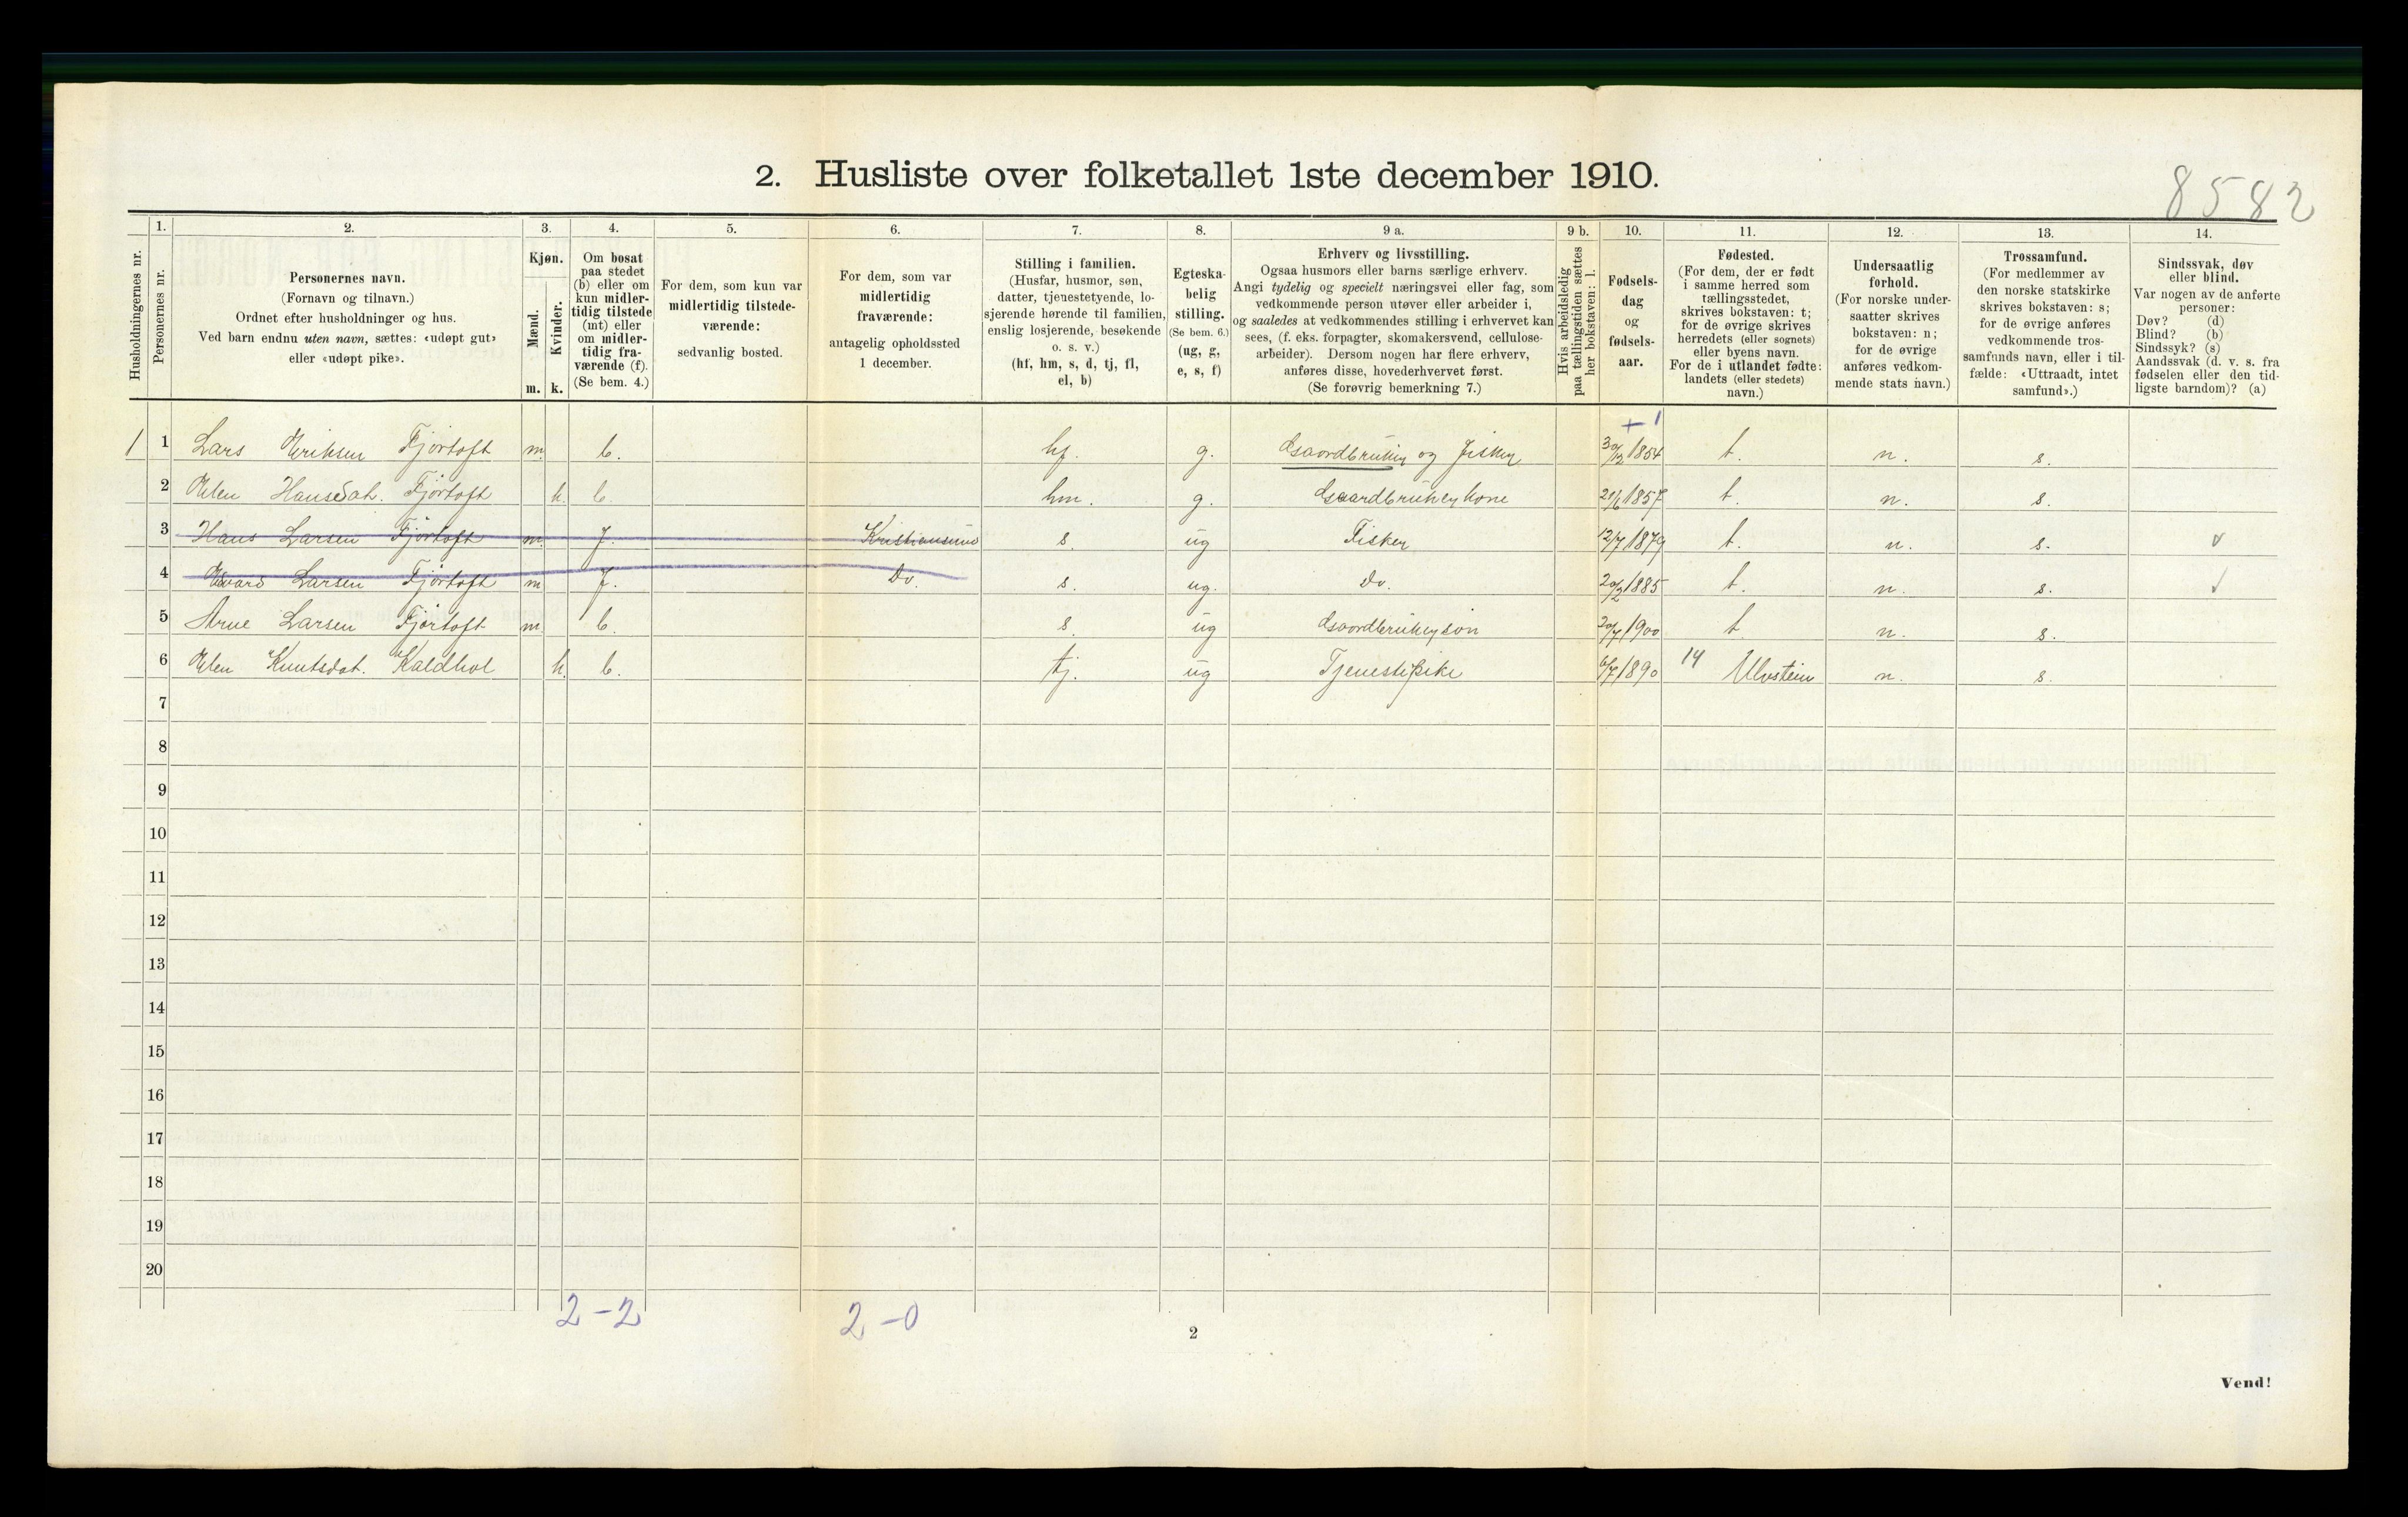 2. Husliste over folketallet 1ste december 1910.
8582
1. 2. 3. 4. 5. 6. 7. 8. 9 a. 9 b. 10. 11. 12. 13. 14.
Husholdningernes nr.
Personernes nr.
Personernes navn.
(Fornavn og tilnavn.)
Ordnet efter husholdninger og hus.
Ved barn endnu uten navn, sættes: «udøpt gut»
eller «udøpt pike».
Kjøn.
Mænd.
m.
Kvinder.
k.
Om bosat
paa stedet
(b) eller om
kun midler-
tidig tilstede
(mt) eller
om midler-
tidig fra-
værende (f).
(Se bem. 4.)
For dem, som kun var
midlertidig tilstede-
værende:
sedvanlig bosted.
For dem, som var
midlertidig
fraværende:
antagelig opholdssted
1 december.
Stilling i familien.
(Husfar, husmor, søn,
datter, tjenestetyende, lo-
sjerende hørende til familien,
enslig losjerende, besøkende
o. s. v.)
(hf, hm, s, d, tj, fl,
el, b)
Egteska-
belig
stilling.
(Se bem. 6.)
(ug, g,
e, s, f)
Erhverv og livsstilling.
Ogsaa husmors eller barns særlige erhverv.
Angi tydelig og specielt næringsvei eller fag, som
vedkommende person utøver eller arbeider i,
og saaledes at vedkommendes stilling i erhvervet kan
sees, (f. eks. forpagter, skomakersvend, cellulose-
arbeider). Dersom nogen har flere erhverv,
anføres disse, hovederhvervet først.
(Se forøvrig bemerkning 7.)
Hvis arbeidsledig
paa tællingstiden sættes
her bokstaven: l.
Fødsels-
dag
og
fødsels-
aar.
Fødested.
(For dem, der er født
i samme herred som
tællingsstedet,
skrives bokstaven: t;
for de øvrige skrives
herredets (eller sognets)
eller byens navn.
For de i utlandet fødte:
landets (eller stedets)
navn.)
Undersaatlig
forhold.
(For norske under-
saatter skrives
bokstaven: n;
for de øvrige
anføres vedkom-
mende stats navn.)
Trossamfund.
(For medlemmer av
den norske statskirke
skrives bokstaven: s;
for de øvrige anføres
vedkommende tros-
samfunds navn, eller i til-
fælde: «Uttraadt, intet
samfund».)
Sindssvak, døv
eller blind.
Var nogen av de anførte
personer:
Døv? (d)
Blind? (b)
Sindssyk? (s)
Aandssvak (d. v. s. fra
fødselen eller den tid-
ligste barndom)? (a)
+ 1
1 1 Lars Eriksen Fjørtoft m. b. hf. g. Gaardbruker og Fisker 30/12 1854 t. n. s.
2 Elen Hansdat. Fjørtoft k. b. hm. g. Gaardbruker kone 21/6 1857 t. n. s.
3 Hans Larsen Fjørtoft m. f. Kristiansund s. ug Fisker 12/7 1879 t. n. s. v
4 Larsen Fjørtoft m f. Do. s. ug. Do. 1885 t. n. s. √
5 Arne Larsen Fjørtoft m. b. s. ug Gaardbruker søn 20/7 1900 t n. s.
6 Elen Knutsdat. Kaldhol k. b. tj. ug Tjenestepike 6/7 1890 14 Ulvstein n. s.
7
8
9
10
11
12
13
14
15
16
17
18
19
20
2 - 2
2 - 0
2
Vend!